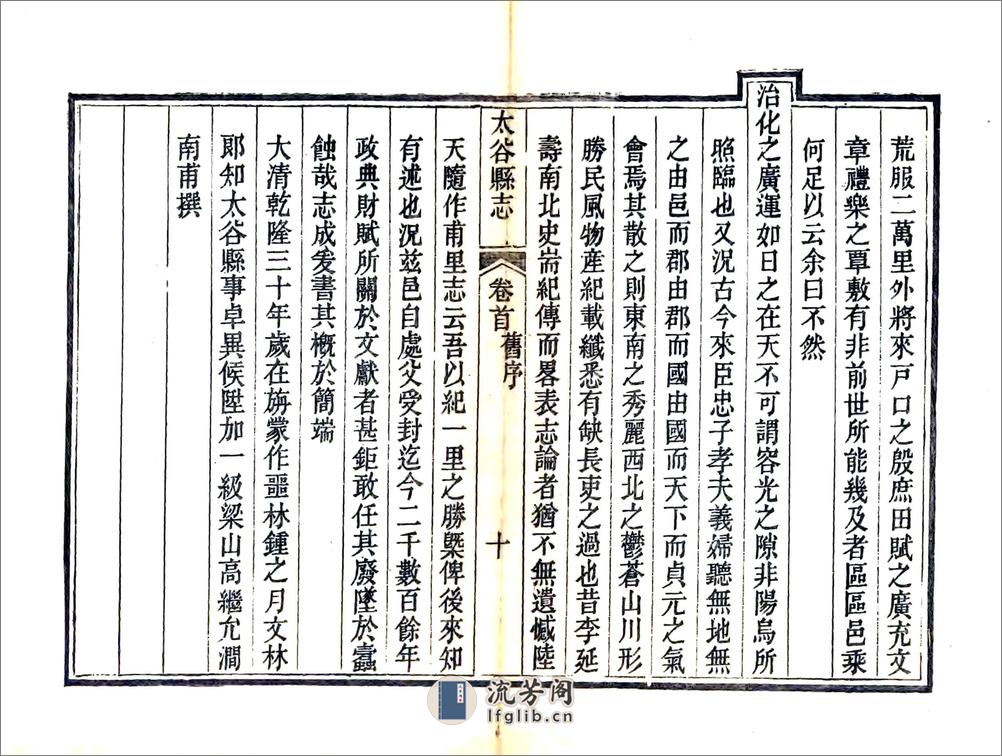 荒服二萬里外將來戸口之殷庶田賦之廣充文
章禮樂之覃敷有非前世所能幾及者區區邑乘
何足以云余曰不然
治化之廣運如日之在天不可謂容光之隙非陽烏所
照臨也又況古今來臣忠子孝夫義婦聽無地無
之由邑而郡由郡而國由國而天下而貞元之氣
會焉其散之則東南之秀麗西北之鬱蒼山川形
勝民風物産紀載纖悉有缺長吏之過也昔李延
壽南北史耑紀傳而畧表志論者猶不無遺憾陸
太谷縣志
卷首
舊序
十
天隨作甫里志云吾以紀一里之勝槩俾後來知
有述也況茲邑自處父受封迄今二千數百餘年
政典財賦所關於文獻者甚鉅敢任其廢墜於蠹
蝕哉志成爰書其槪於簡端
大清乾隆三十年歲在旃蒙作噩林鍾之月文林
郞知太谷縣事卓異候陞加一級梁山高繼允澗
南甫撰
流芳阁
lfglib.cn